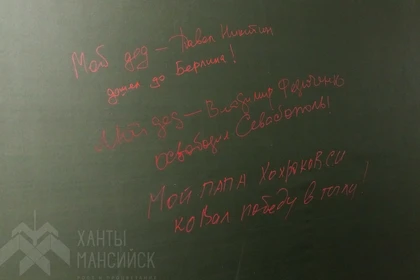 Мой дед – Павел Никитин
дошел до Берлина!
Мой дед – Владимир
освободил Севастополь!
МОЙ ПАПА
КОВАЛ победу в тылу!
ХАНТЫ
МАНСИЙСК